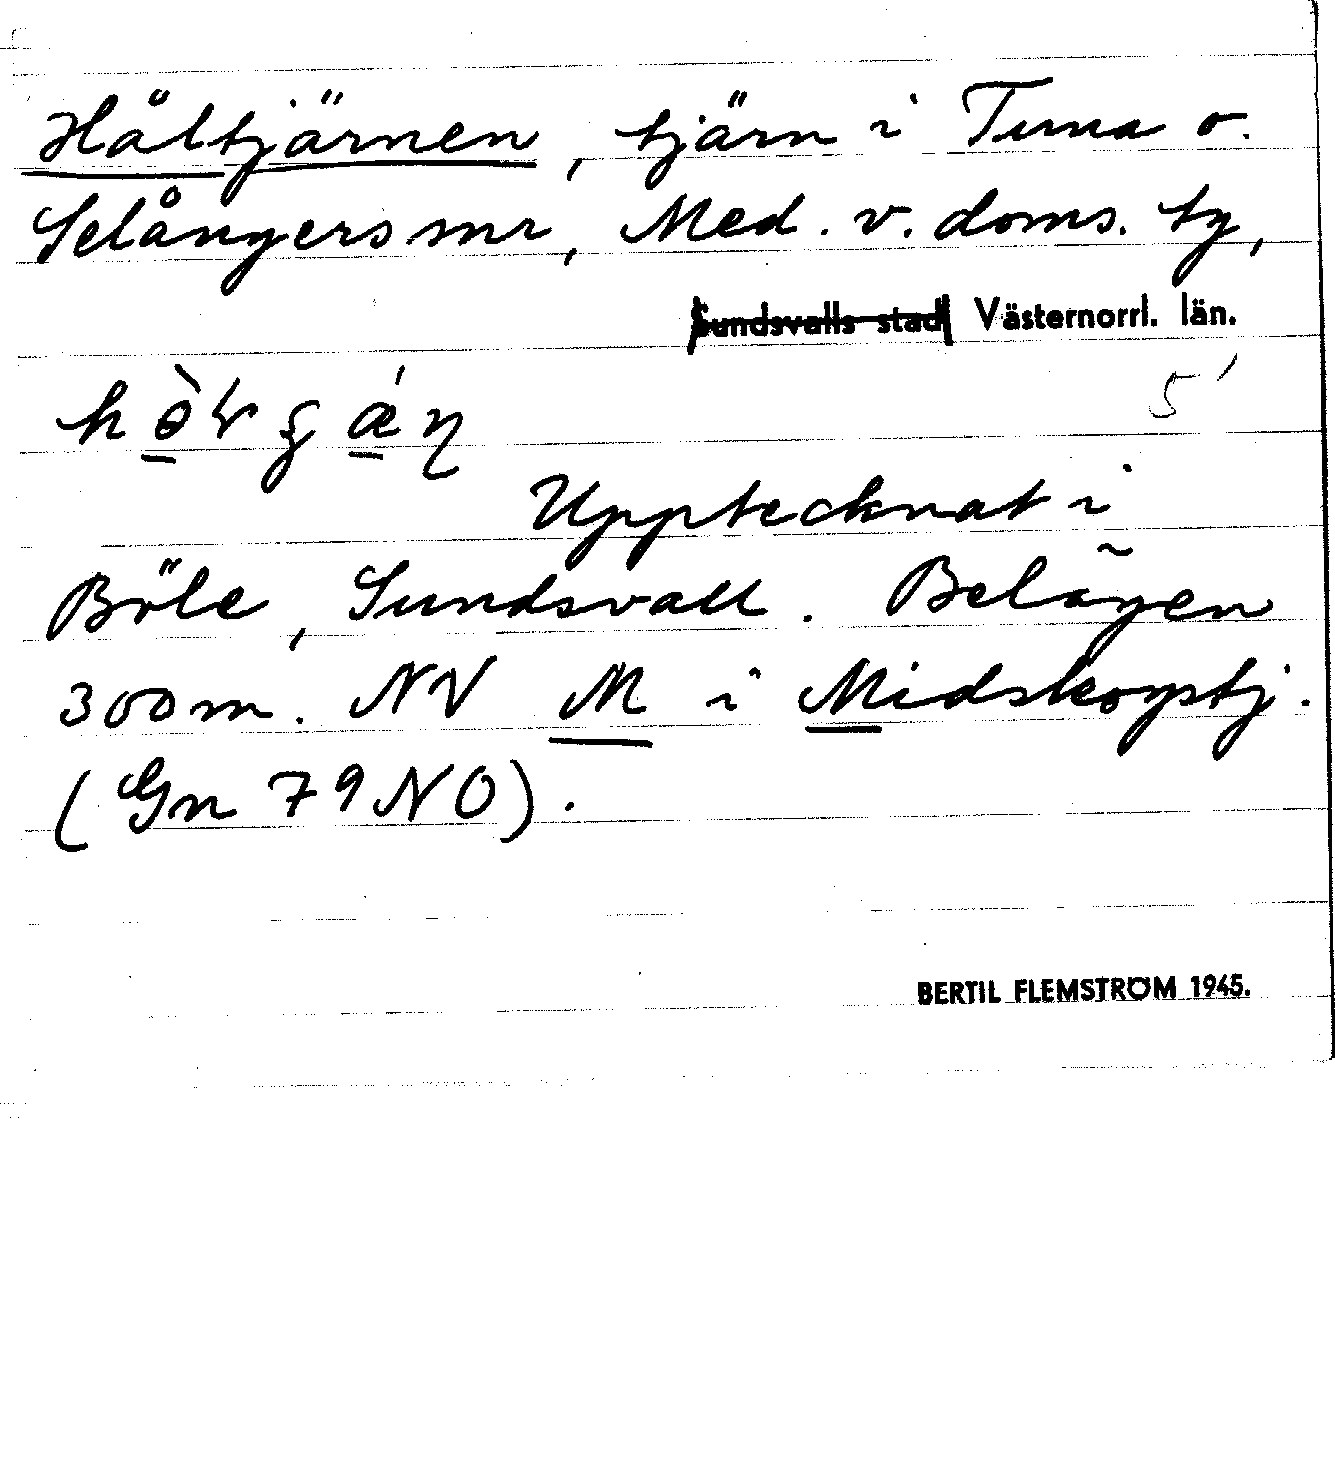 Håltjärnen, tjärn i Tuna o.
Selångers snr, Med. v. doms. tg,
Sundsvalls stad Västernorrl. län.
5'
Upptecknat i
Böle, Sundsvall. Belägen
300 m. NV M i Midskogstj.
(Gn 79 NO).
BERTIL FLEMSTRÖM 1945.